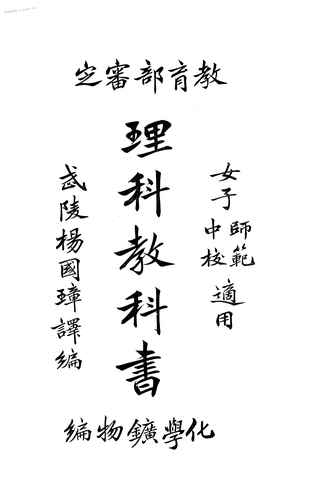 教育部審定
女子師範中校適用
理科教科書
武陵楊國璋譯編
化學鑛物編